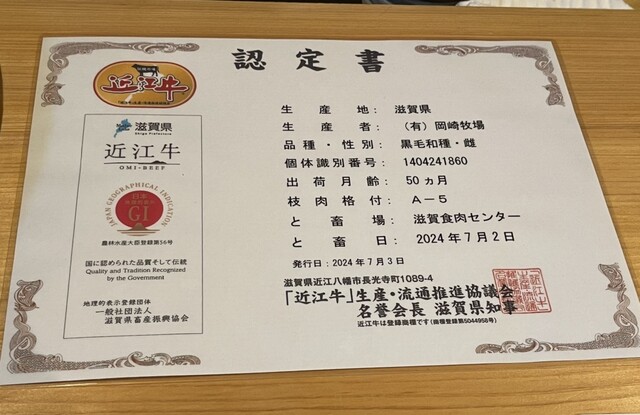 認定書
近江牛
滋賀県
Shiga Prefecture
近江牛
OMI-BEEF
JAPAN GEOGRAPHICAL INDICATION
日本
GI
農林水産大臣登録第56号
国に認められた品質そして伝統
Quality and Tradition Recognized
by the Government
地理的表示登録団体
一般社団法人
滋賀県畜産振興協会
生産地: 滋賀県
生産者: (有)岡崎牧場
品種・性別: 黒毛和種・雌
個体識別番号: 1404241860
出荷月齢: 50ヵ月
枝肉格付: A-5
と畜場: 滋賀食肉センター
と畜日: 2024年7月2日
発行日:2024年7月3日
滋賀県近江八幡市長光寺町1089-4
「近江牛」生産・流通推進協議会
名誉会長 滋賀県知事
近江牛は登録商標です(商標登録第5044958号)